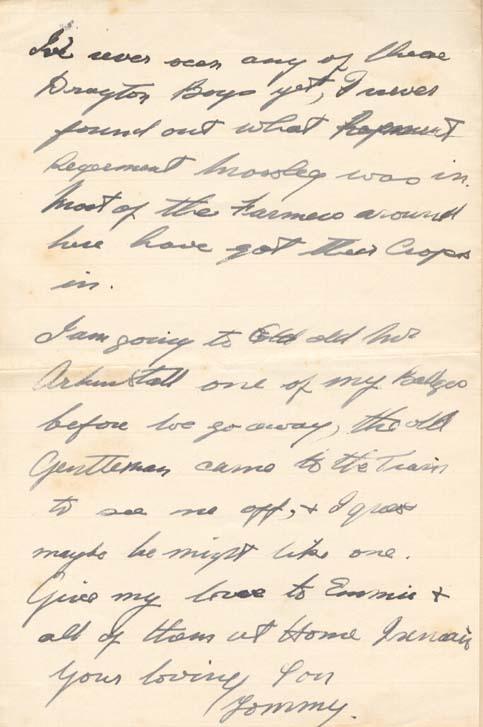 I've never seen any of those
Drayton Boys yet, I never
found out what Regment
Regerment Mosley was in.
Most of the Farmers around
here have got their Crops
in.
I am going to old Mr
one of my Badges
before we go away, the old
Gentleman came to the Train
to see me off, & I guess
maybe he might like one.
Give my love to Emmie &
all of them at Home I remain
Your loving Son
Tommy.